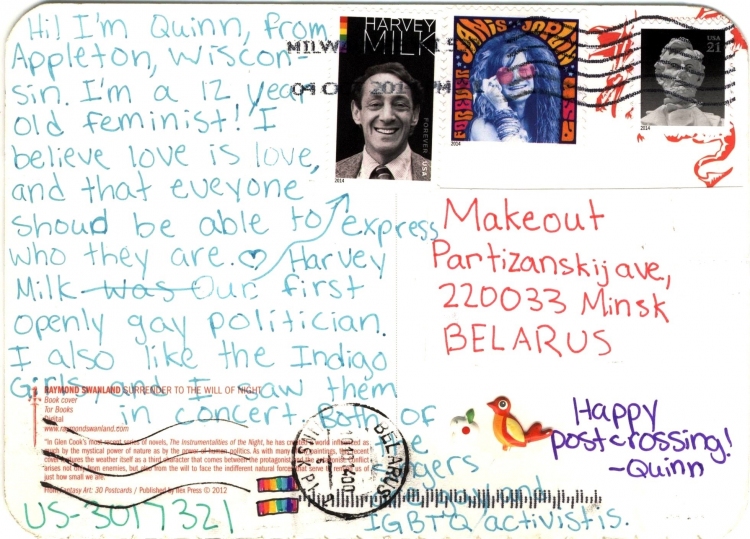 Hi! I'm Quinn, from
Appleton, Wiscon-
sin. I'm a 12 year
old feminist! I
believe love is love,
and that eveyone
shoud be able to express
who they are. Harvey
Milk was Our first
openly gay politician.
I also like the Indigo
Girls, and I saw them
in concert. Both of
the
gers
gay and
lGBTQ activistis.
US-3017321
HARVEY
MILK
FOREVER
USA
2014
JANIS JOPLIN
FOREVER
USA
2014
USA
21
2014
Makeout
Partizanskij ave,
220033 Minsk
BELARUS
Happy
postcrossing!
-Quinn
RAYMOND SWANLAND SURRENDER TO THE WILL OF NIGHT
Book cover
Tor Books
Digital
www.raymondswanland.com
"In Glen Cook's most recent series of novels, The Instrumentalities of the Night, he has created a world influenced as
much by the mystical power of nature as by the power of human politics. As with many of my paintings, the recent
cover features the weather itself as a third character that comes between the protagonist and the antagonist. Conflict
arises not only from enemies, but also from the will to face the indifferent natural forces that serve to remind us of
just how small we are."
From Fantasy Art: 30 Postcards / Published by Ilex Press © 2012
BELARUS
MINSK